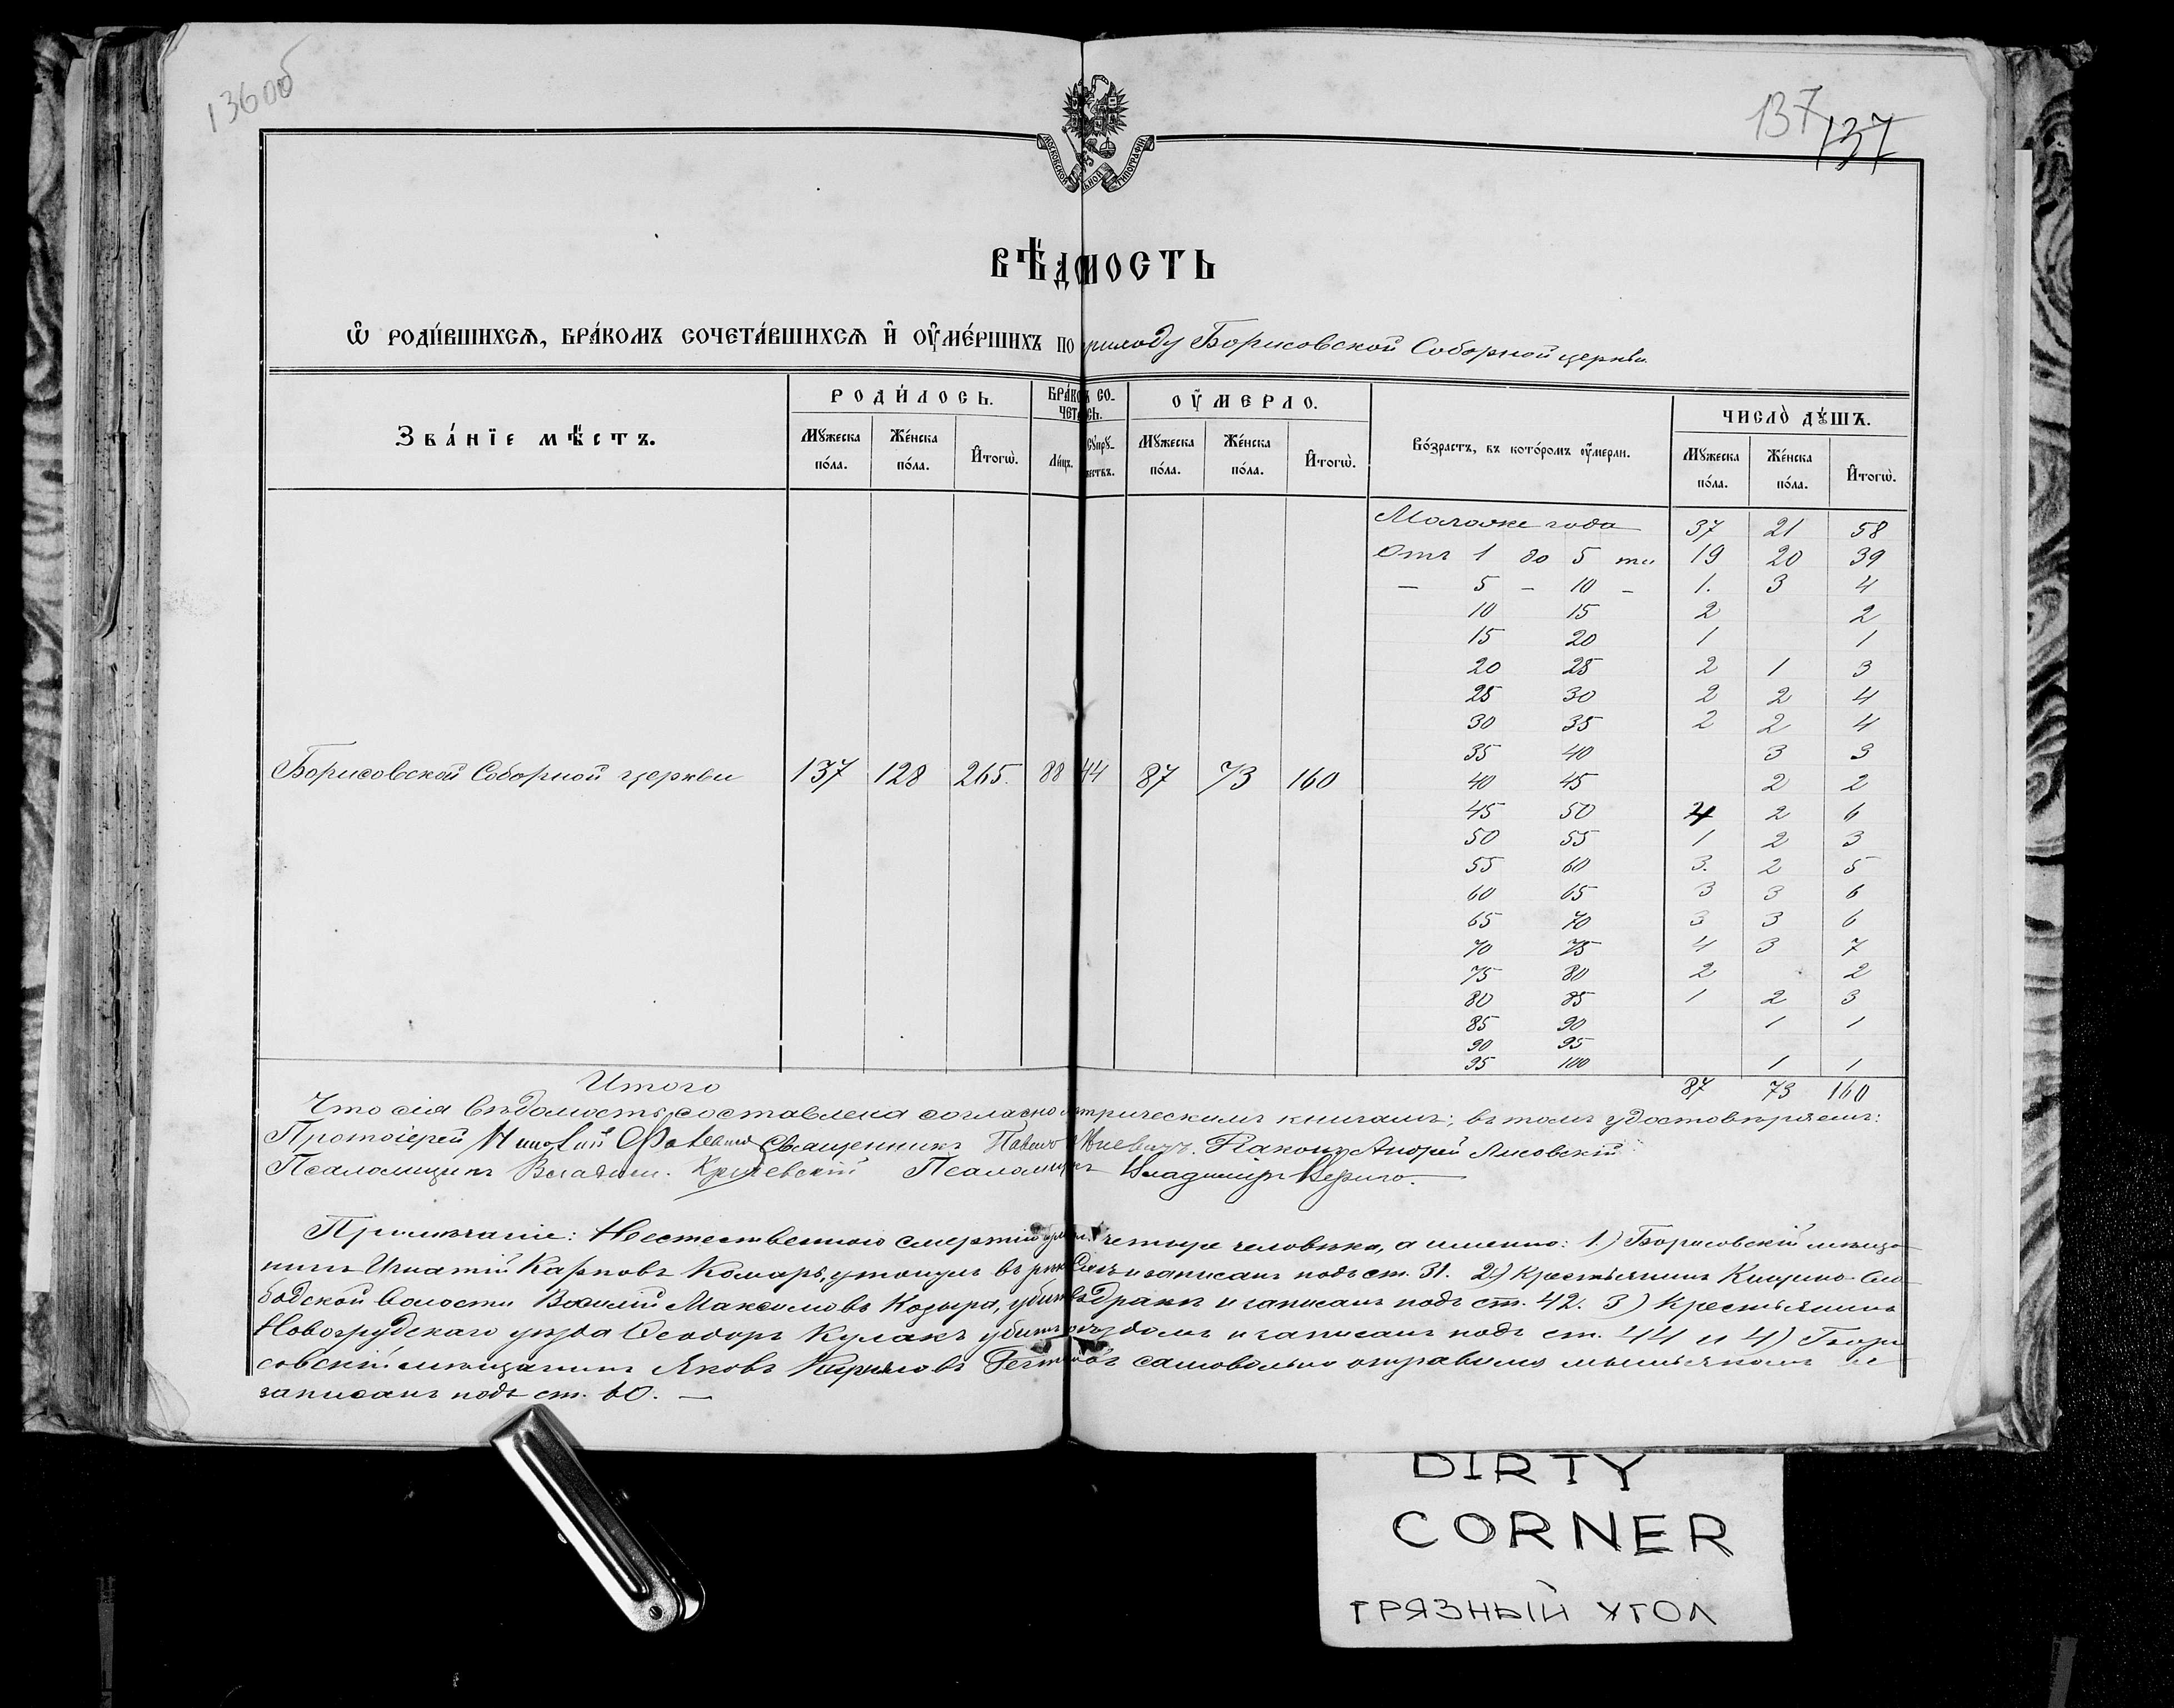 136 об
137
137
МОСКОВСКОЙ СѴНОД ТИПОГРАФІИ
ВѢДОМОСТЬ
Ѡ РОДИ́ВШИХСѦ, БРА́КОМЪ СОЧЕТА́ВШИХСѦ И҆ ОУ҆МЕ́РШИХЪ ПО приходу Борисовской Соборной церкви
Зва́нїе мѣ́стъ.
РОДИ́ЛОСЬ.
Мꙋ́жеска по́ла. Же́нска по́ла. И҆тогѡ̀.
БРА́КОМЪ СОЧЕТ́АСЬ.
Ли́цъ. Сꙋпрꙋ́жествъ.
ОУ҆МЕРЛО.
Мꙋ́жеска по́ла. Же́нска по́ла. И҆тогѡ̀.
Во́зрастъ, въ кото́ромъ оу҆́мерли.
ЧИСЛО̀ ДꙊ́ШЪ.
Мꙋ́жеска по́ла. Же́нска по́ла. И҆тогѡ̀.
Моложе года 37 21 58
Отъ 1 до 5 ти 19 20 39
— 5 — 10 — 1. 3 4
10 15 2 2
15 20 1 1
20 25 2 1 3
25 30 2 2 4
30 35 2 2 4
35 40 3 3
Борисовской Соборной церкви 137 128 265. 88 44 87 73 160
40 45 2 2
45 50 4 2 6
50 55 1 2 3
55 60 3. 2 5
60 65 3 3 6
65 70 3 3 6
70 75 4 3 7
75 80 2 2
80 85 1 2 3
85 90 1 1
90 95
95 100 1 1
Итого 87 73 160
Что сія вѣдомость составлена согласно метрическимъ книгамъ; въ томъ удостовѣряемъ:
Протоіерей Священникъ Павелъ Діаконъ Андрей Лисовскій
Псаломщикъ Владим. Псаломщикъ Владиміръ Вериго. —
Примѣчаніе: Неестественною смертію четыре человѣка, а именно: 1.) Борисовскій мѣща-
нинъ Игнатій Карповъ Комаръ, утонулъ въ рѣкѣ и записанъ подъ ст. 31. 2.) Крестьянинъ Кищино-Сло-
бодской волости Василій Максимовъ Козыра, убитъ въ дракѣ и записанъ подъ ст. 42. 3) Крестьянинъ
Новогрудскаго уѣзда Ѳеодоръ Кулакъ убитъ и записанъ подъ ст. 44 и 4) Бори
совскій мѣщанинъ Яковъ Кириловъ самовольно отравился мышьякомъ и
записанъ подъ ст. 60. —
DIRTY
CORNER
ГРЯЗНЫЙ УГОЛ